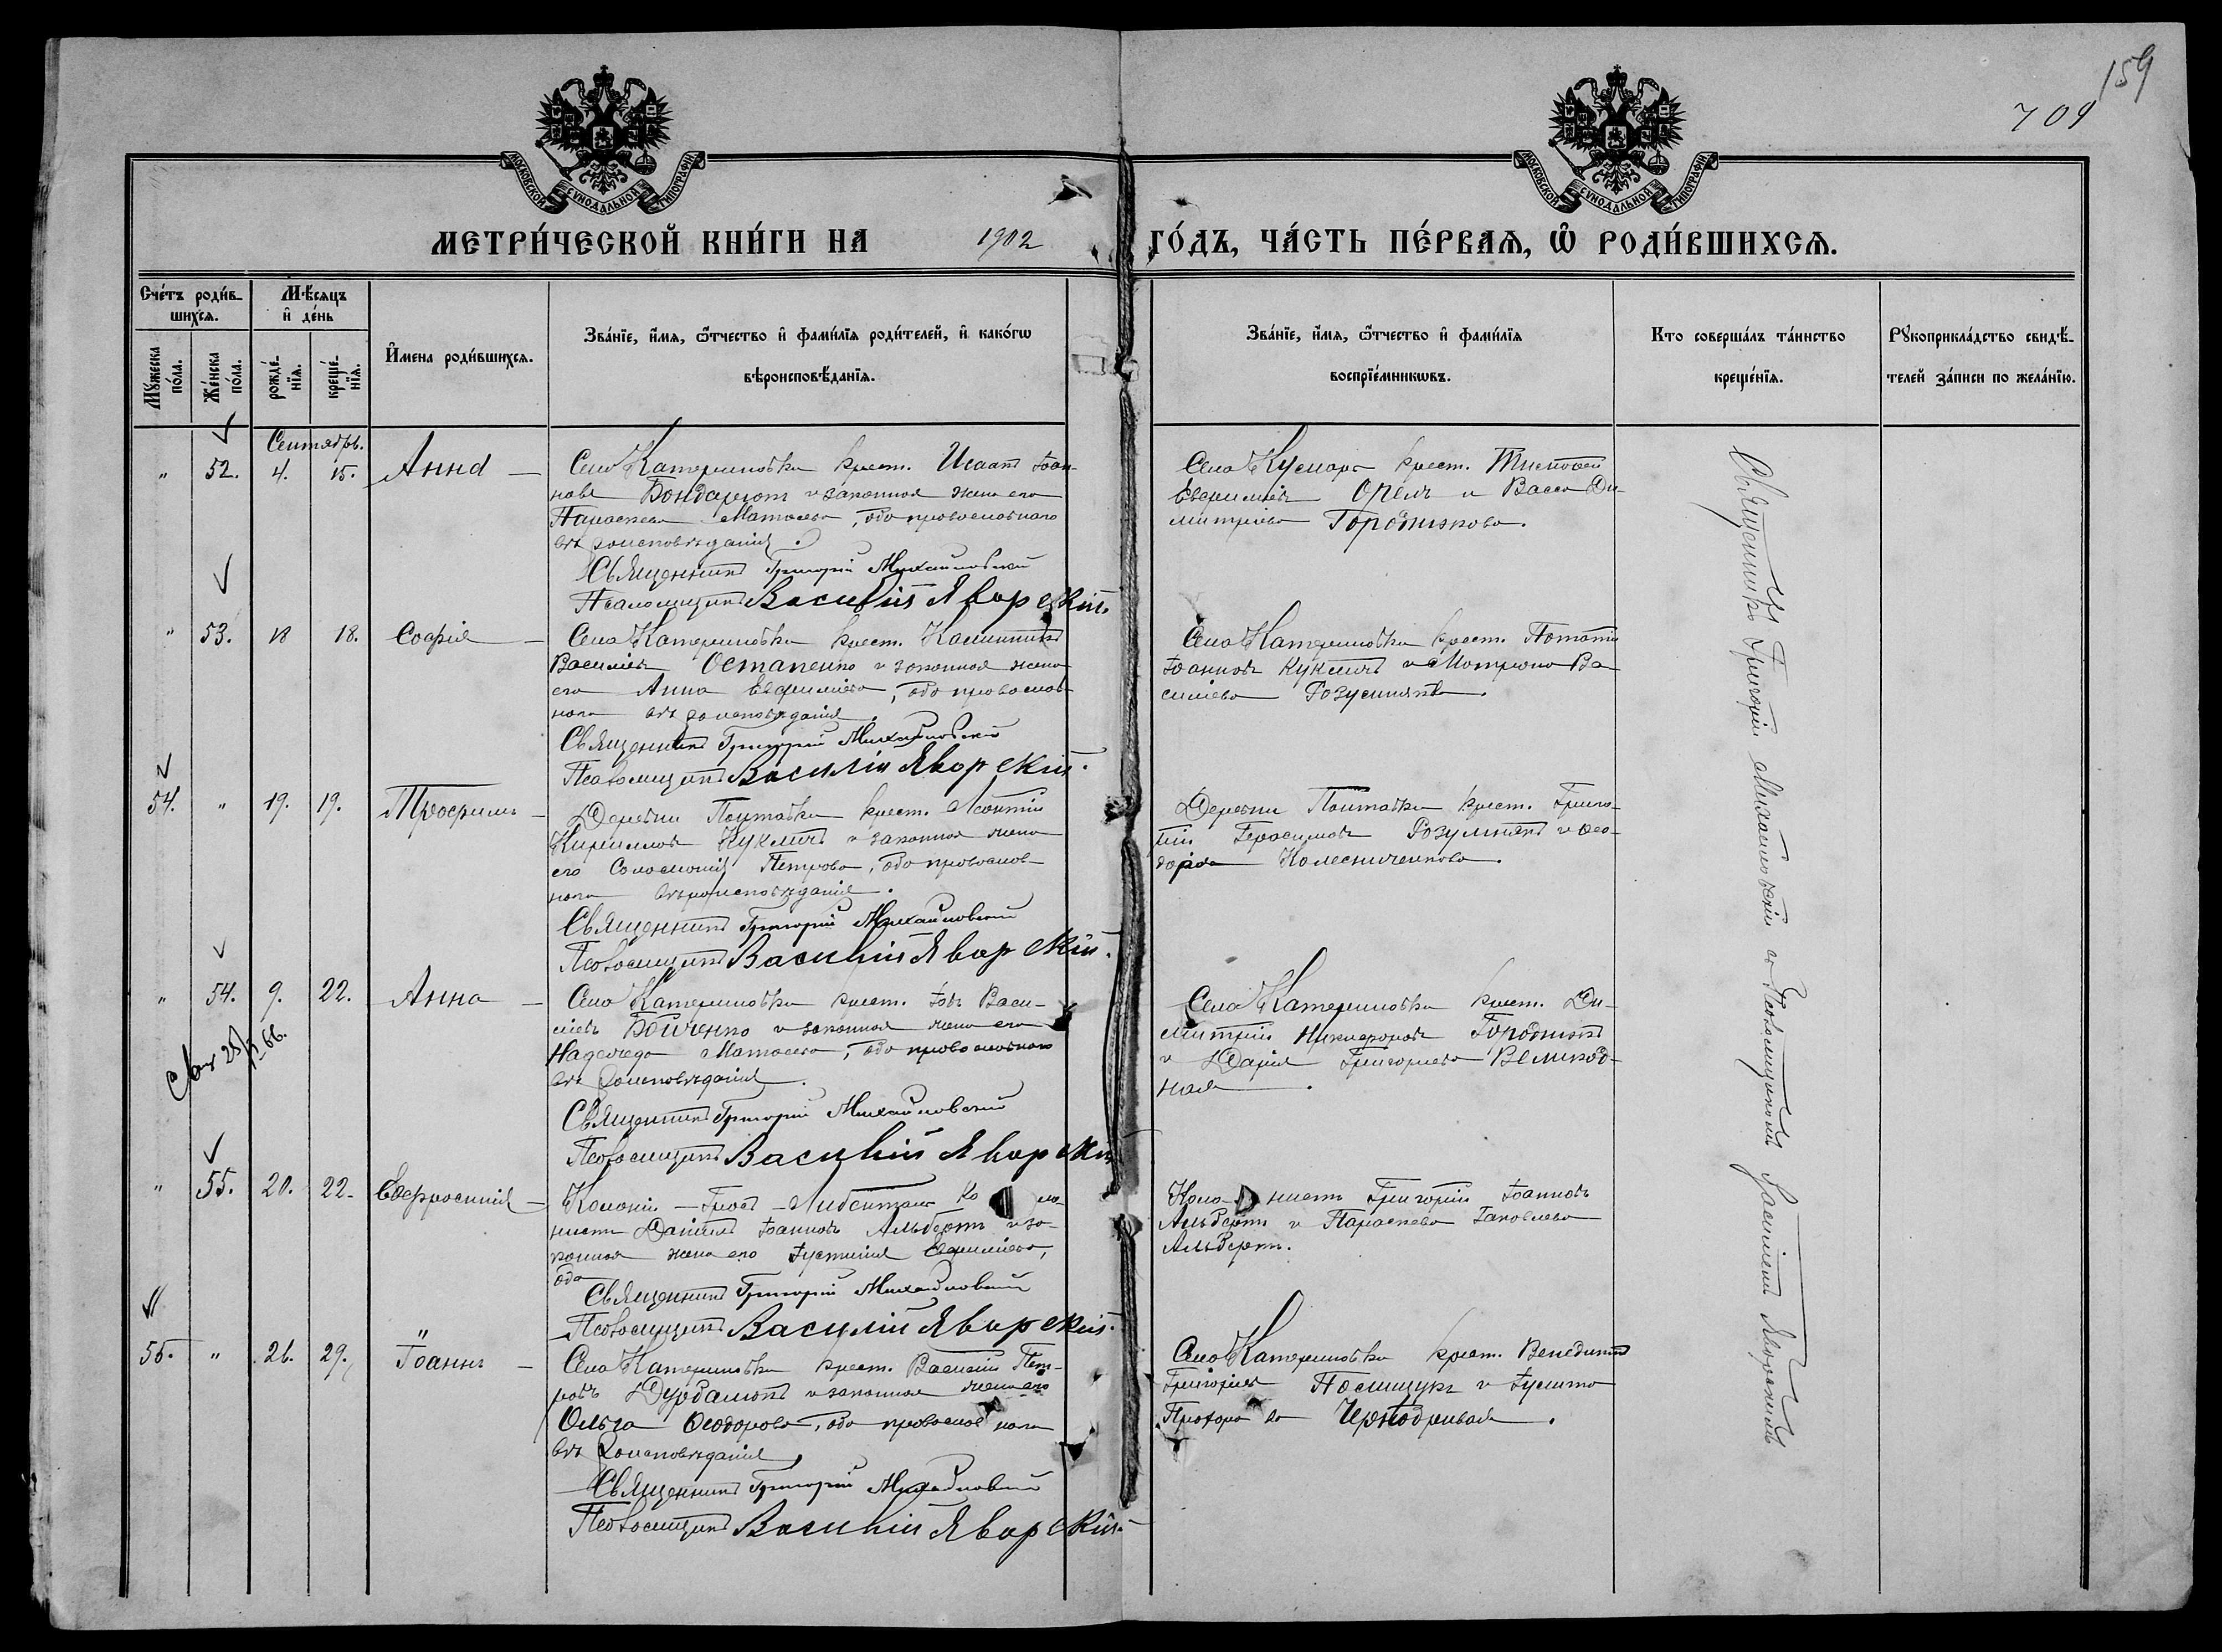 159
709
МОСКОВСКОЙ СУНОДАЛЬНОЙ ТИПОГРАФІИ
МОСКОВСКОЙ СУНОДАЛЬНОЙ ТИПОГРАФІИ
МЕТРИ́ЧЕСКОЙ КНИ́ГИ НА 1902 ГО́ДЪ, ЧА́СТЬ ПЕ́РВАѦ, Ѽ РОДИ́ВШИХСѦ.
Сче́тъ роди́в-
шихсѧ.
Мѣ́сѧцъ
и҆ де́нь
Мꙋ́жеска
по́ла.
Же́нска
по́ла.
рожде́-
нїѧ.
креще́-
нїѧ.
И҆мена роди́вшихсѧ.
Зва́нїе, и҆́мѧ, ѻ҆́тчество и҆ фами́лїѧ роди́телей, и҆ како́гѡ
вѣроисповѣ́данїѧ.
Зва́нїе, и҆́мѧ, ѻ҆́тчество и҆ фами́лїѧ
воспрїе́мникѡвъ.
Кто соверша́лъ та́инство
креще́нїѧ.
Рꙋкоприкла́дство свидѣ́-
телей за́писи по жела́нїю.
Сентябрь.
" 52. 4. 15. Анна —
Села Катериновки крест. Исаакъ Іоан-
новъ Бондарюкъ и законная жена его
Параскева Матѳеева, оба православнаго
вѣроисповѣданія.
Священникъ Григорій Михайловскій
Псаломщикъ Василій Яворскій.
крест. Тимоѳей
Евфиміевъ Орелъ и Васса Ди-
митріева Городнякова.
" 53. 18 18. Софія —
Села Катериновки крест. Калинникъ
Василіевъ Остапенко и законная жена
его Анна Евфиміева, оба православ-
наго вѣроисповѣданія.
Священникъ Григорій Михайловскій
Псаломщикъ Василій Яворскій.
Села Катериновки крест. Потапій
Іоанновъ Кукличъ и Матрона Ва-
силіева
54. " 19. 19. Трофимъ —
Деревни Полтавки крест. Леонтій
Кирилловъ Кукличъ и законная жена
его Соломонія Петрова, оба православ-
наго вѣроисповѣданія.
Священникъ Григорій Михайловскій
Псаломщикъ Василій Яворскій.
Деревни Полтавки крест. Григо-
рій Герасимовъ Розумнякъ и Ѳео-
дора Колесниченкова.
" 54. 9. 22. Анна —
Села Катериновки крест. Іовъ Васи-
ліевъ Бойченко и законная жена его
Надежда Матѳеева, оба православнаго
вѣроисповѣданія.
Священникъ Григорій Михайловскій
Псаломщикъ Василій Яворскій
Села Катериновки крест. Ди-
митрій Никифоровъ Городнякъ
и Дарія Григоріева Великод-
ная.
" 55. 20. 22. Евфросинія —
Колоніи — Гросъ-Либенталь Коло-
нистъ Даніилъ Іоанновъ Альбертъ и за-
конная жена его Іустинія Евфиміева,
оба
Священникъ Григорій Михайловскій
Псаломщикъ Василій Яворскій.
Колонистъ Григорій Іоанновъ
Альбертъ и Параскева Іаковлева
Альбертъ.
55. " 26. 29. Іоаннъ —
Села Катериновки крест. Василій Пет-
ровъ и законная жена его
Ольга Ѳеодорова, оба православнаго
вѣроисповѣданія
Священникъ Григорій Михайловскій
Псаломщикъ Василій Яворскій.
Села Катериновки крест. Венедиктъ
Григоріевъ Полищукъ и Іулитта
Прохорова
Священникъ Григорій Михайловскій съ Псаломщикомъ Василіемъ Яворскимъ